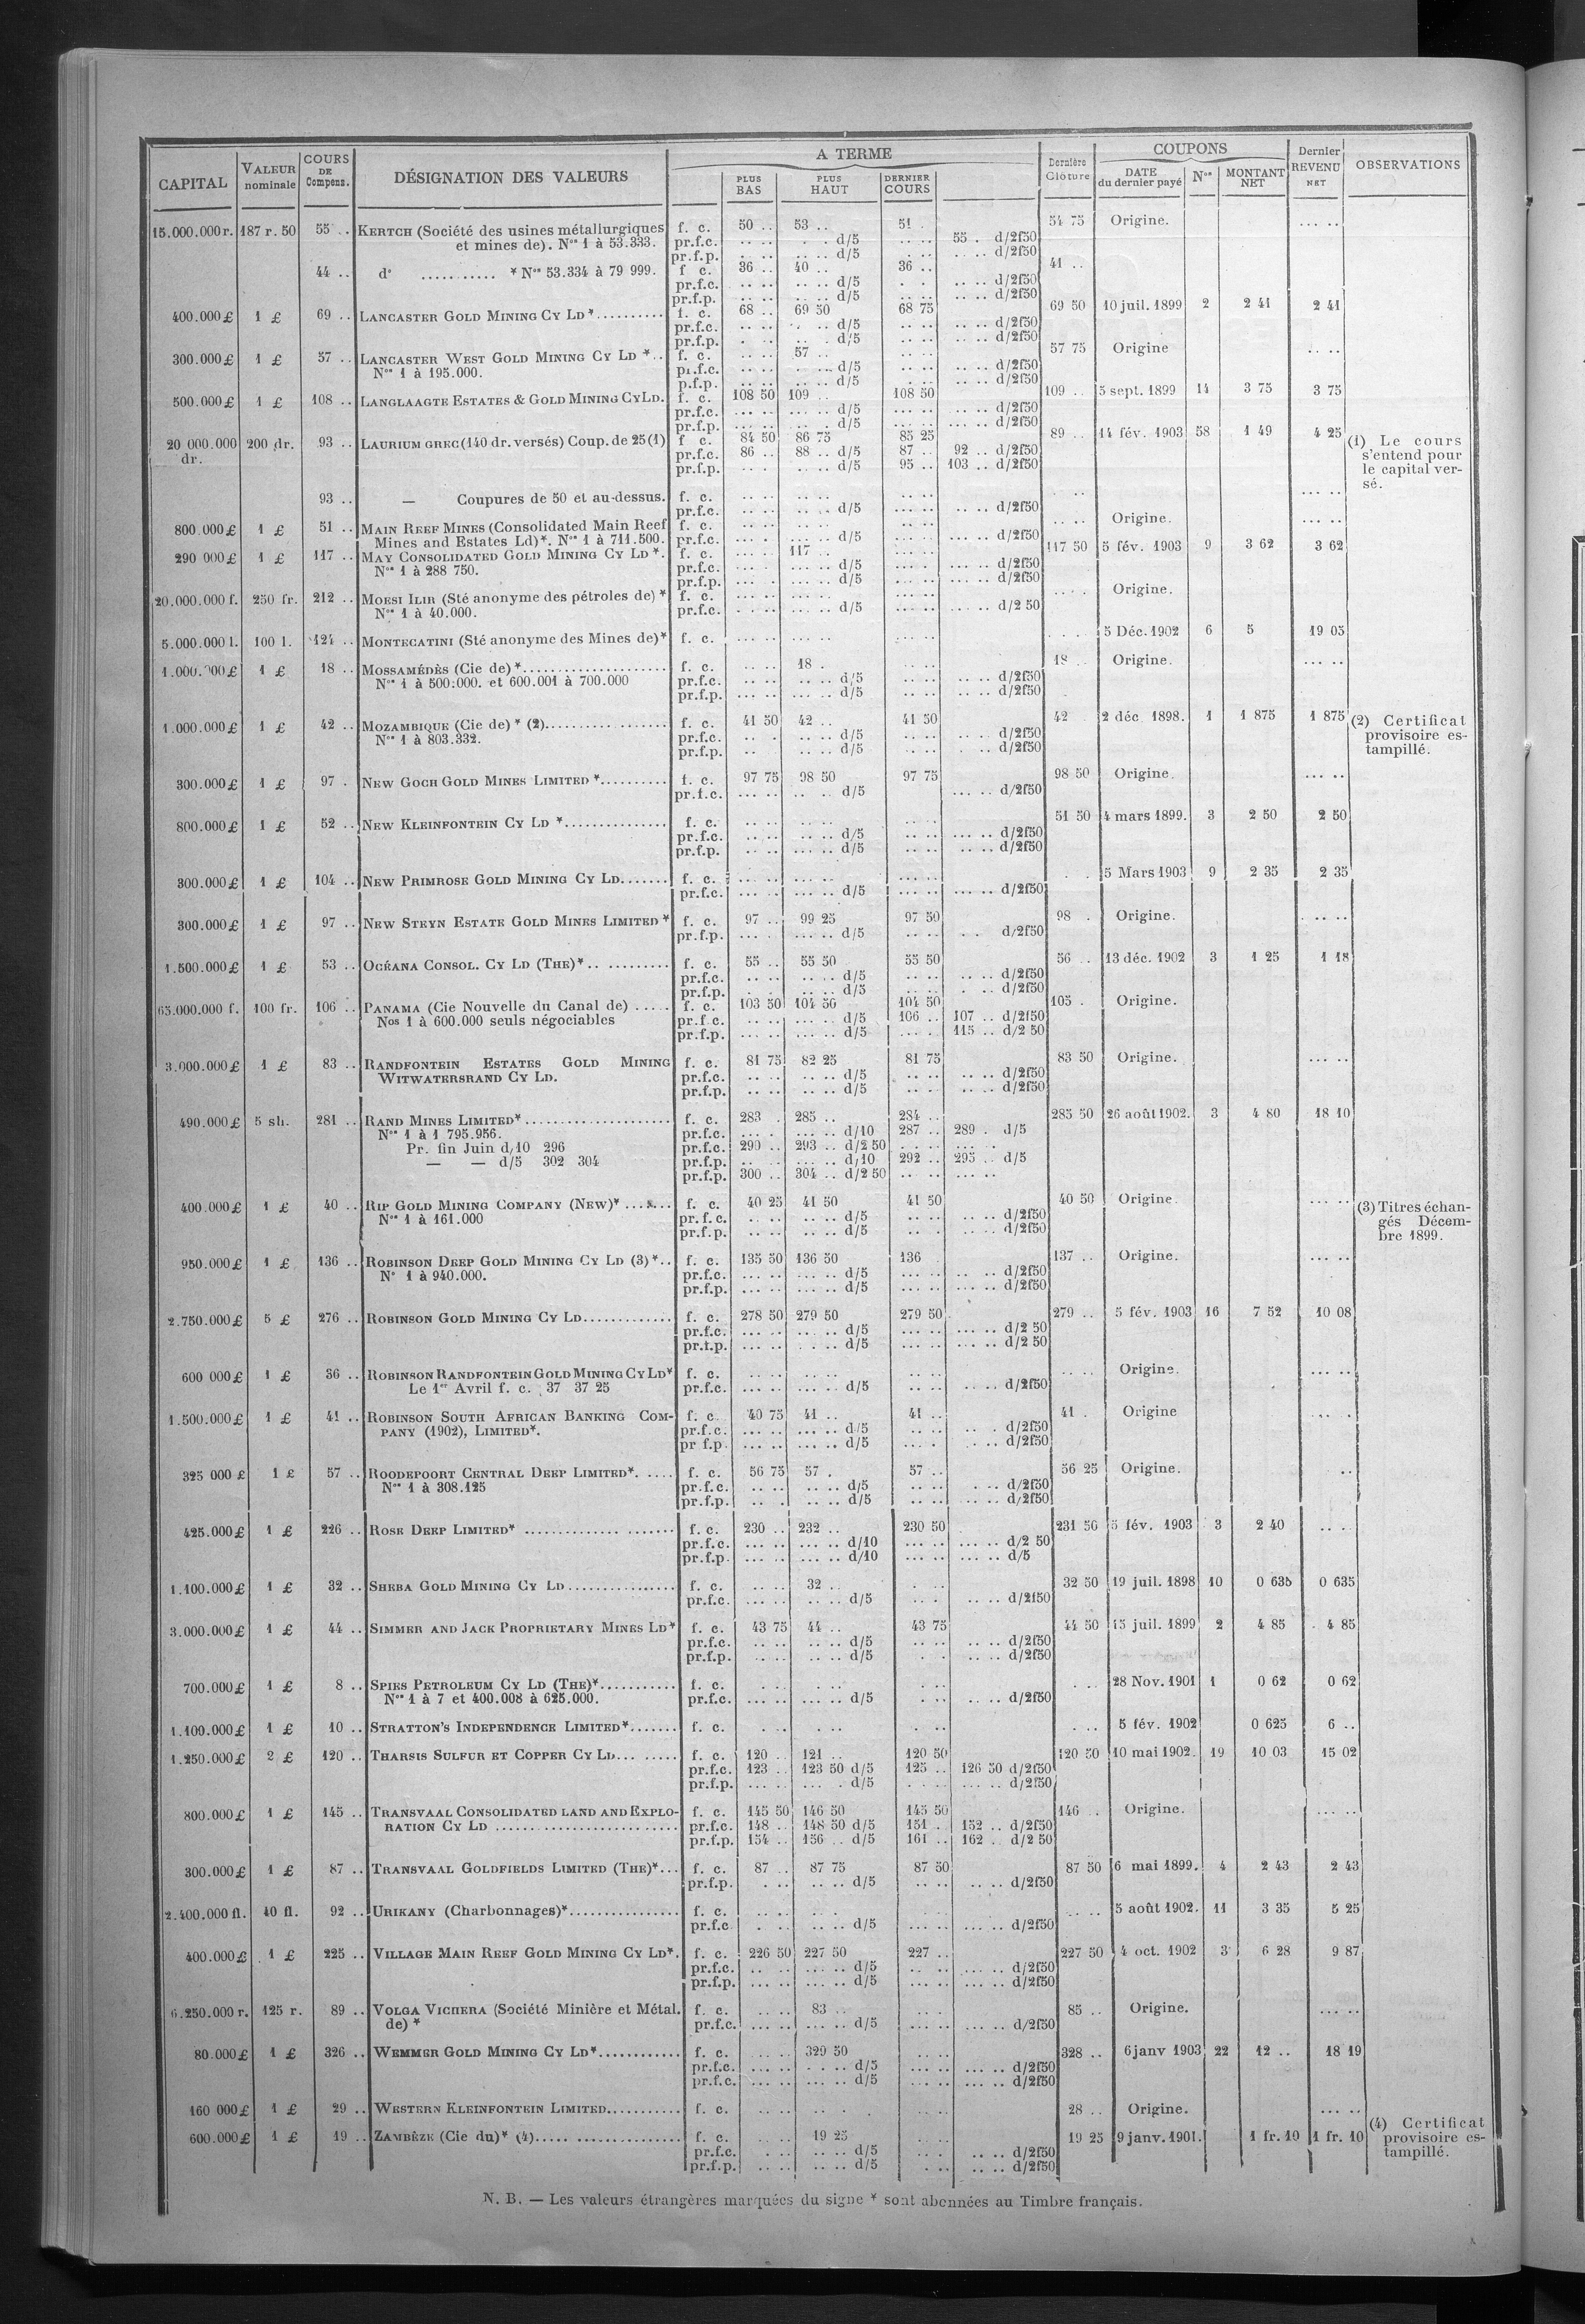 CAPITAL VALEUR nominale COURS DE Compens. DÉSIGNATION DES VALEURS A TERME PLUS BAS PLUS HAUT DERNIER COURS Dernière Clôture COUPONS DATE du dernier payé Nos MONTANT NET Dernier REVENU NET OBSERVATIONS
15.000.000 r. 187 r. 50 55 .. KERTCH (Société des usines métallurgiques f. c. 50 .. 53 .. 51 . 54 75 Origine. ... ..
et mines de). Nos 1 à 53.333. pr.f.c. .. .. . . d/5 .. .. 55 . d/2f50
pr.f.p. . .. .. d/5 . .. .. .. d/2f50
44 .. do ........... * Nos 53.334 à 79 999. f c. 36 .. 40 .. 36 .. 41 ..
pr.f.c. .. .. .. .. d/5 . . .. .. d/2f50
pr.f.p. .. .. .. .. d/5 .. .. .. .. d/2f50
400.000 £ 1 £ 69 .. LANCASTER GOLD MINING CY LD *.......... f. c. 68 .. 69 50 68 75 69 50 10 juil. 1899 2 2 41 2 41
pr.f.c. .. .. .. . d/5 .. .. .. .. d/2f50
pr.f.p. . .. .. . d/5 .. .. .. .. d/2f50
300.000 £ 1 £ 57 .. LANCASTER WEST GOLD MINING CY LD *.. f. c. .. .. 57 .. .. .. 57 75 Origine .. ..
Nos 1 à 195.000. pr.f.c. .. .. . ... d/5 .. .. .. .. d/2f50
p.f.p. .. .. .. .. d/5 . .. .. .. d/2f50
500.000 £ 1 £ 108 .. LANGLAAGTE ESTATES & GOLD MINING CY LD. f. c. 108 50 109 .. 108 50 109 .. 5 sept. 1899 14 3 75 3 75
pr.f.c. ... .. ... .. d/5 ... .. .. .. d/2f50
pr.f.p. ... .. ... .. d/5 ... .. .. .. d/2f50
20 000.000 dr. 200 dr. 93 .. LAURIUM GREC (140 dr. versés) Coup. de 25 (1) f c. 84 50 86 75 85 25 89 .. 14 fév. 1903 58 1 49 4 25 (1) Le cours
pr.f.c. 86 .. 88 .. d/5 87 .. 92 .. d/2f50 s'entend pour
pr.f.p. .. .. . .. d/5 95 .. 103 .. d/2f50 le capital ver-
sé.
93 .. — Coupures de 50 et au-dessus. f. c. .. .. .. .. .. .. . .. ... ..
pr.f.c. .. .. .. .. d/5 .. .. .. .. d/2f50
800 000 £ 1 £ 51 .. MAIN REEF MINES (Consolidated Main Reef f. c. .. .. .. .. .. .. .. .. Origine. ... ..
Mines and Estates Ld)*. Nos 1 à 711.500. pr.f.c. ... . ... .. d/5 ... .. ... .. d/2f50
290 000 £ 1 £ 117 .. MAY CONSOLIDATED GOLD MINING CY LD *. f. c. ... .. 117 .. ... .. 117 50 5 fév. 1903 9 3 62 3 62
Nos 1 à 288 750. pr.f.c. ... .. ... .. d/5 ... . ... .. d/2f50
pr.f.p. ... . ... .. d/5 ... .. ... .. d/2f50
20.000.000 f. 250 fr. 212 .. MOESI ILIR (Sté anonyme des pétroles de) * f. c. ... .. ... .. ... .. ... . Origine.
Nos 1 à 40.000. pr.f.c. . .. .. ... .. d/5 ... .. ... .. d/2 50
5.000.000 l. 100 l. 124 .. MONTECATINI (Sté anonyme des Mines de)* f. c. ... .. ... .. ... .. . . . 5 Déc. 1902 6 5 19 05
1.000.000 £ 1 £ 18 .. MOSSAMÉDÈS (Cie de) *.................... f. c. .. .. 18 . .. .. 18 .. Origine. ... ..
Nos 1 à 500.000. et 600.001 à 700.000 pr.f.c. .. .. .. .. d/5 .. .. .. .. d/2f50
pr.f.p. ... .. ... .. d/5 .. .. .. .. d/2f50
1.000.000 £ 1 £ 42 .. MOZAMBIQUE (Cie de) * (2)................. f. c. 41 50 42 .. 41 50 42 2 déc 1898. 1 1 875 1 875 (2) Certificat
Nos 1 à 803.332. pr.f.c. .. . .. .. d/5 .. .. .. . d/2f50 provisoire es-
pr.f.p. .. .. .. d/5 .. .. . .. d/2f50 tampillé.
300.000 £ 1 £ 97 . NEW GOCH GOLD MINES LIMITED *.......... f. c. 97 75 98 50 97 75 98 50 Origine. ... ..
pr.f.c. ... .. .. .. d/5 ... .. d/2f50
800.000 £ 1 £ 52 .. NEW KLEINFONTEIN CY LD *............... f. c. .. .. .. .. .. . 51 50 4 mars 1899. 3 2 50 2 50
pr.f.c. .. .. .. .. d/5 .. .. ... .. d/2f50
pr.f.p. .. .. ... .. d/5 .. .. .. .. d/2f50
300.000 £ 1 £ 104 .. NEW PRIMROSE GOLD MINING CY LD....... f. c. ... .. ... .. ... .. . . 5 Mars 1903 9 2 35 2 35
pr.f.c. ... .. ... .. d/5 ... .. ... .. d/2f50
300.000 £ 1 £ 97 .. NEW STEYN ESTATE GOLD MINES LIMITED * f. c. 97 .. 99 25 97 50 98 . Origine. . .. ..
pr.f.p. ... . ... .. d/5 .. .. . . d/2f50
1.500.000 £ 1 £ 53 .. OCÉANA CONSOL. CY LD (THE)*.. ......... f. c. 55 .. 55 50 55 50 56 .. 13 déc. 1902 3 1 25 1 18
pr.f.c. .. .. .. .. d/5 .. .. .. .. d/2f50
pr.f.p. . . .. .. d/5 .. .. . .. d/2f50
65.000.000 f. 100 fr. 106 .. PANAMA (Cie Nouvelle du Canal de) ..... f. c. 103 50 104 50 104 50 105 . Origine.
Nos 1 à 600.000 seuls négociables pr.f.c. .. .. ... .. d/5 106 .. 107 .. d/2f50
pr.f.p. .. .. ... .. d/5 ... . 115 .. d/2 50
3.000.000 £ 1 £ 83 .. RANDFONTEIN ESTATES GOLD MINING f. c. 81 75 82 25 81 75 83 50 Origine. ... ..
WITWATERSRAND CY LD. pr.f.c. .. .. .. .. d/5 .. .. .. .. d/2f50
pr.f.p. .. .. .. .. d/5 .. .. .. .. d/2f50
490.000 £ 5 sh. 281 .. RAND MINES LIMITED*..................... f. c. 283 . 285 .. 284 .. 285 50 26 août 1902. 3 4 80 18 10
Nos 1 à 1 795.956. pr.f.c. ... . ... .. d/10 287 .. 289 . d/5
Pr. fin Juin d/10 296 pr.f.c. 290 .. 293 .. d/2 50 . . . .
— — d/5 302 304 pr.f.p. .. .. ... .. d/10 292 .. 295 .. d/5
pr.f.p. 300 .. 304 .. d/2 50 .. .. ... ..
400.000 £ 1 £ 40 .. RIP GOLD MINING COMPANY (NEW)* ...... f. c. 40 25 41 50 41 50 40 50 Origine. ... .. (3) Titres échan-
Nos 1 à 161.000 pr.f.c. .. .. .. .. d/5 .. .. .. .. d/2f50 gés Décem-
pr.f.p. .. .. .. .. d/5 .. . .. .. d/2f50 bre 1899.
950.000 £ 1 £ 136 .. ROBINSON DEEP GOLD MINING CY LD (3) *.. f. c. 135 50 136 50 136 137 .. Origine. ... ..
No 1 à 940.000. pr.f.c. ... .. ... .. d/5 ... .. .. .. d/2f50
pr.f.p. ... .. ... .. d/5 ... .. ... .. d/2f50
2.750.000 £ 5 £ 276 .. ROBINSON GOLD MINING CY LD............. f. c. 278 50 279 50 279 50 279 .. 5 fév. 1903 16 7 52 10 08
pr.f.c. ... .. ... .. d/5 ... .. ... .. d/2 50
pr.t.p. ... .. . .. .. d/5 ... .. ... .. d/2 50
600 000 £ 1 £ 36 .. ROBINSON RANDFONTEIN GOLD MINING CY LD* f. c. .. .. .. .. .. .. .. .. Origine. ... ..
Le 1er Avril f. c. 37 37 25 pr.f.c. ... .. ... .. d/5 .. .. .. .. d/2f50
1.500.000 £ 1 £ 41 .. ROBINSON SOUTH AFRICAN BANKING COM- f. c. 40 75 41 .. 41 .. 41 . Origine .. .
PANY (1902), LIMITED*. pr.f.c. ... .. ... .. d/5 .. .. .. . d/2f50
pr f.p. ... .. ... .. d/5 ... . . .. d/2f50
325 000 £ 1 £ 57 .. ROODEPOORT CENTRAL DEEP LIMITED*. ..... f. c. 56 75 57 . 57 .. 56 25 Origine. ..
Nos 1 à 308.125 pr.f.c. .. .. .. .. d/5 .. .. . .. d/2f50
pr.f.p. .. . .. .. d/5 .. .. .. .. d/2f50
425.000 £ 1 £ 226 .. ROSE DEEP LIMITED* ..................... f. c. 230 .. 232 .. 230 50 231 50 5 fév. 1903 3 2 40 .. .
pr.f.c. ... .. ... .. d/10 ... .. ... .. d/2 50
pr.f.p. ... .. ... .. d/10 ... .. ... .. d/5
1.100.000 £ 1 £ 32 .. SHEBA GOLD MINING CY LD............... f. c. .. .. 32 .. . .. 32 50 19 juil. 1898 10 0 635 0 635
pr.f.c. .. .. .. .. d/5 .. . .. .. d/2f50
3.000.000 £ 1 £ 44 .. SIMMER AND JACK PROPRIETARY MINES LD* f. c. 43 75 44 .. 43 75 44 50 15 juil. 1899 2 4 85 4 85
pr.f.c. .. .. .. .. d/5 .. .. .. .. d/2f50
pr.f.p. .. .. .. .. d/5 . . .. .. d/2f50
700.000 £ 1 £ 8 .. SPIES PETROLEUM CY LD (THE)*........... f. c. . .. . .. . .. . .. 28 Nov. 1901 1 0 62 0 62
Nos 1 à 7 et 400.008 à 625.000. pr.f.c. ... .. ... .. d/5 . .. .. .. d/2f50
1.100.000 £ 1 £ 10 .. STRATTON'S INDEPENDENCE LIMITED*....... f. c. . .. . .. . .. . .. 5 fév. 1902 0 625 6 ..
1.250.000 £ 2 £ 120 .. THARSIS SULFUR ET COPPER CY LD... ...... f. c. 120 .. 121 .. 120 50 120 50 10 mai 1902. 19 10 03 15 02
pr.f.c. 123 .. 123 50 d/5 125 .. 126 50 d/2f50
pr.f.p. ... .. ... . d/5 . .. ... .. d/2f50
800.000 £ 1 £ 145 .. TRANSVAAL CONSOLIDATED LAND AND EXPLO- f. c. 145 50 146 50 145 50 146 .. Origine. ... ..
RATION CY LD .......................... pr.f.c. 148 .. 148 50 d/5 151 . 152 .. d/2f50
pr.f.p. 154 .. 156 .. d/5 161 .. 162 . d/2 50
300.000 £ 1 £ 87 .. TRANSVAAL GOLDFIELDS LIMITED (THE)*... f. c. 87 .. 87 75 87 50 87 50 6 mai 1899. 4 2 43 2 43
pr.f.p. . .. .. .. d/5 .. .. .. .. d/2f50
2.400.000 fl. 40 fl. 92 .. URIKANY (Charbonnages)*............... f. c. .. .. .. .. .. .. .. .. 5 août 1902. 11 3 35 5 25
pr.f.c . .. .. .. d/5 ... .. ... .. d/2f50
400.000 £ 1 £ 225 .. VILLAGE MAIN REEF GOLD MINING CY LD*. f. c. 226 50 227 50 227 .. 227 50 4 oct. 1902 3 6 28 9 87
pr.f.c. .. .. ... .. d/5 .. .. ... .. d/2f50
pr.f.p. ... .. ... .. d/5 ... .. ... .. d/2f50
6.250.000 r. 125 r. 89 .. VOLGA VICHERA (Société Minière et Métal. f. c. .. .. 83 .. .. . 85 .. Origine. ... ..
de) * pr.f.c. ... .. ... .. d/5 ... .. ... .. d/2f50
80.000 £ 1 £ 326 .. WEMMER GOLD MINING CY LD*............ f. c. ... .. 329 50 .. .. 328 .. 6 janv 1903 22 12 .. 18 19
pr.f.c. ... .. . .. .. d/5 ... .. ... .. d/2f50
pr.f.c. ... .. ... .. d/5 ... .. ... .. d/2f50
160 000 £ 1 £ 29 .. WESTERN KLEINFONTEIN LIMITED........... f. c. .. .. .. . .. .. 28 .. Origine. ... ..
600.000 £ 1 £ 19 .. ZAMBÈZE (Cie du)* (4)..................... f. c. .. .. 19 25 .. . 19 25 9 janv. 1901. 1 fr. 10 1 fr. 10 (4) Certificat
pr.f.c. . .. .. .. d/5 .. .. .. .. d/2f50 provisoire es-
pr.f.p. .. .. .. .. d/5 . .. .. .. d/2f50 tampillé.
N. B. — Les valeurs étrangères marquées du signe * sont abonnées au Timbre français.